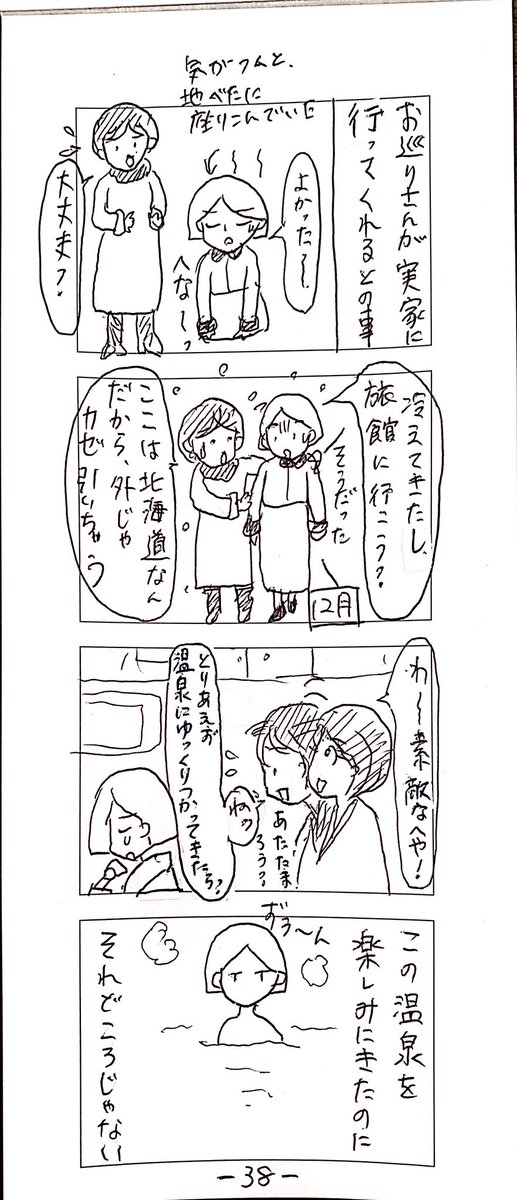 お巡りさんが実家に
行ってくれるとの事
気がつくと、
地べたに
座りこんでいた
よかった〜
へな〜っ
大丈夫?
冷えてきたし、
旅館に行こう?
そうだった
12月
ここは北海道なん
だから、外じゃ
カゼ引いちゃう
わ〜素敵なへや!
あたたまろう?
ねっ
とりあえず
温泉にゆっくりつかってきたら?
ずう〜ん
この温泉を
楽しみにきたのに
それどころじゃない
-38-